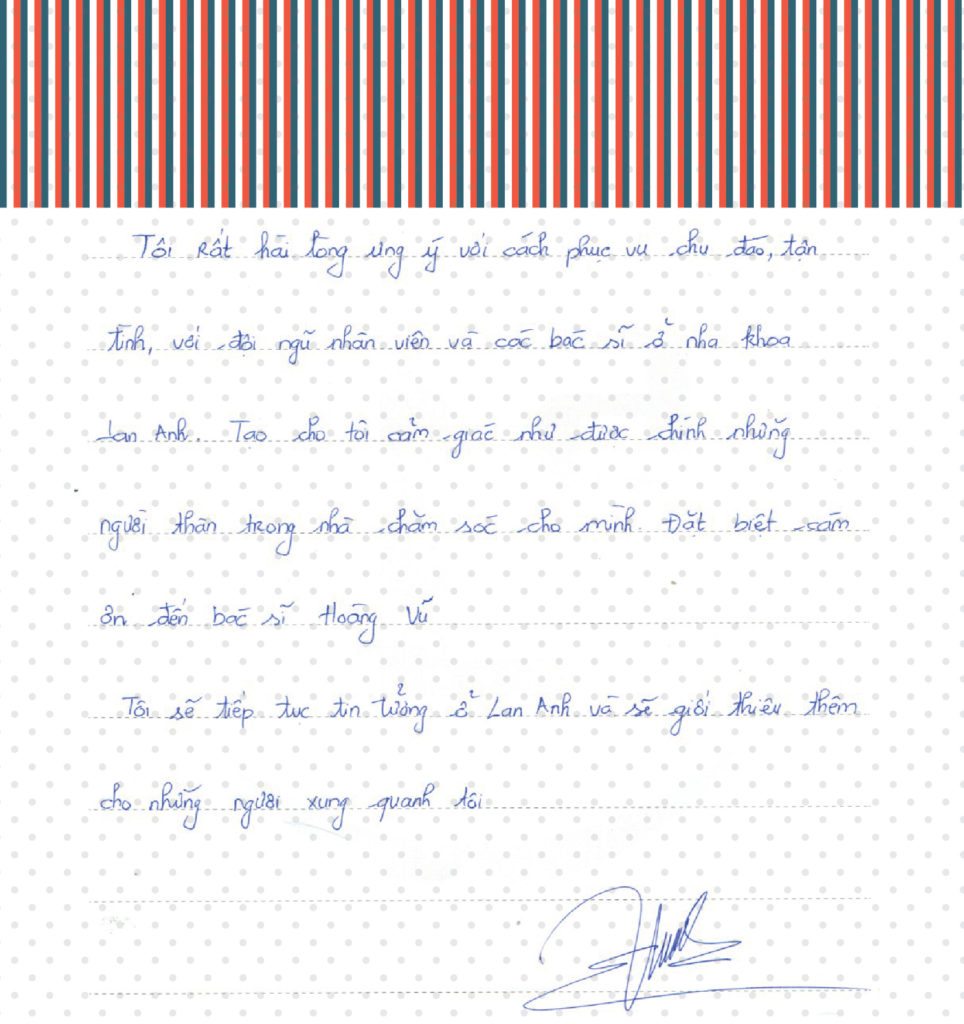 Tôi Rất hài lòng ưng ý với cách phục vụ chu đáo, tận
tình, với đội ngũ nhân viên và các bác sĩ ở nha khoa
Lan Anh. Tạo cho tôi cảm giác như được chính những
người thân trong nhà chăm sóc cho mình. Đặt biệt cám
ơn đến bác sĩ Hoàng Vũ
Tôi sẽ tiếp tục tin tưởng ở Lan Anh và sẽ giới thiệu thêm
cho những người xung quanh tôi